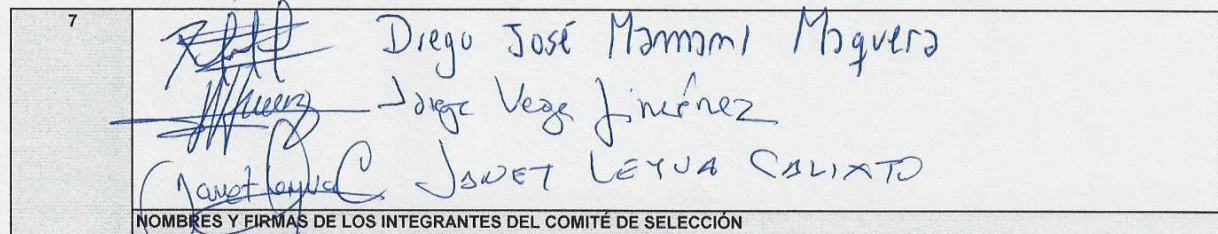 7
Diego José Mamani Maquera
Jorge Vega Jiménez
Janet Leyva C. JANET LEYVA CALIXTO
NOMBRES Y FIRMAS DE LOS INTEGRANTES DEL COMITÉ DE SELECCIÓN